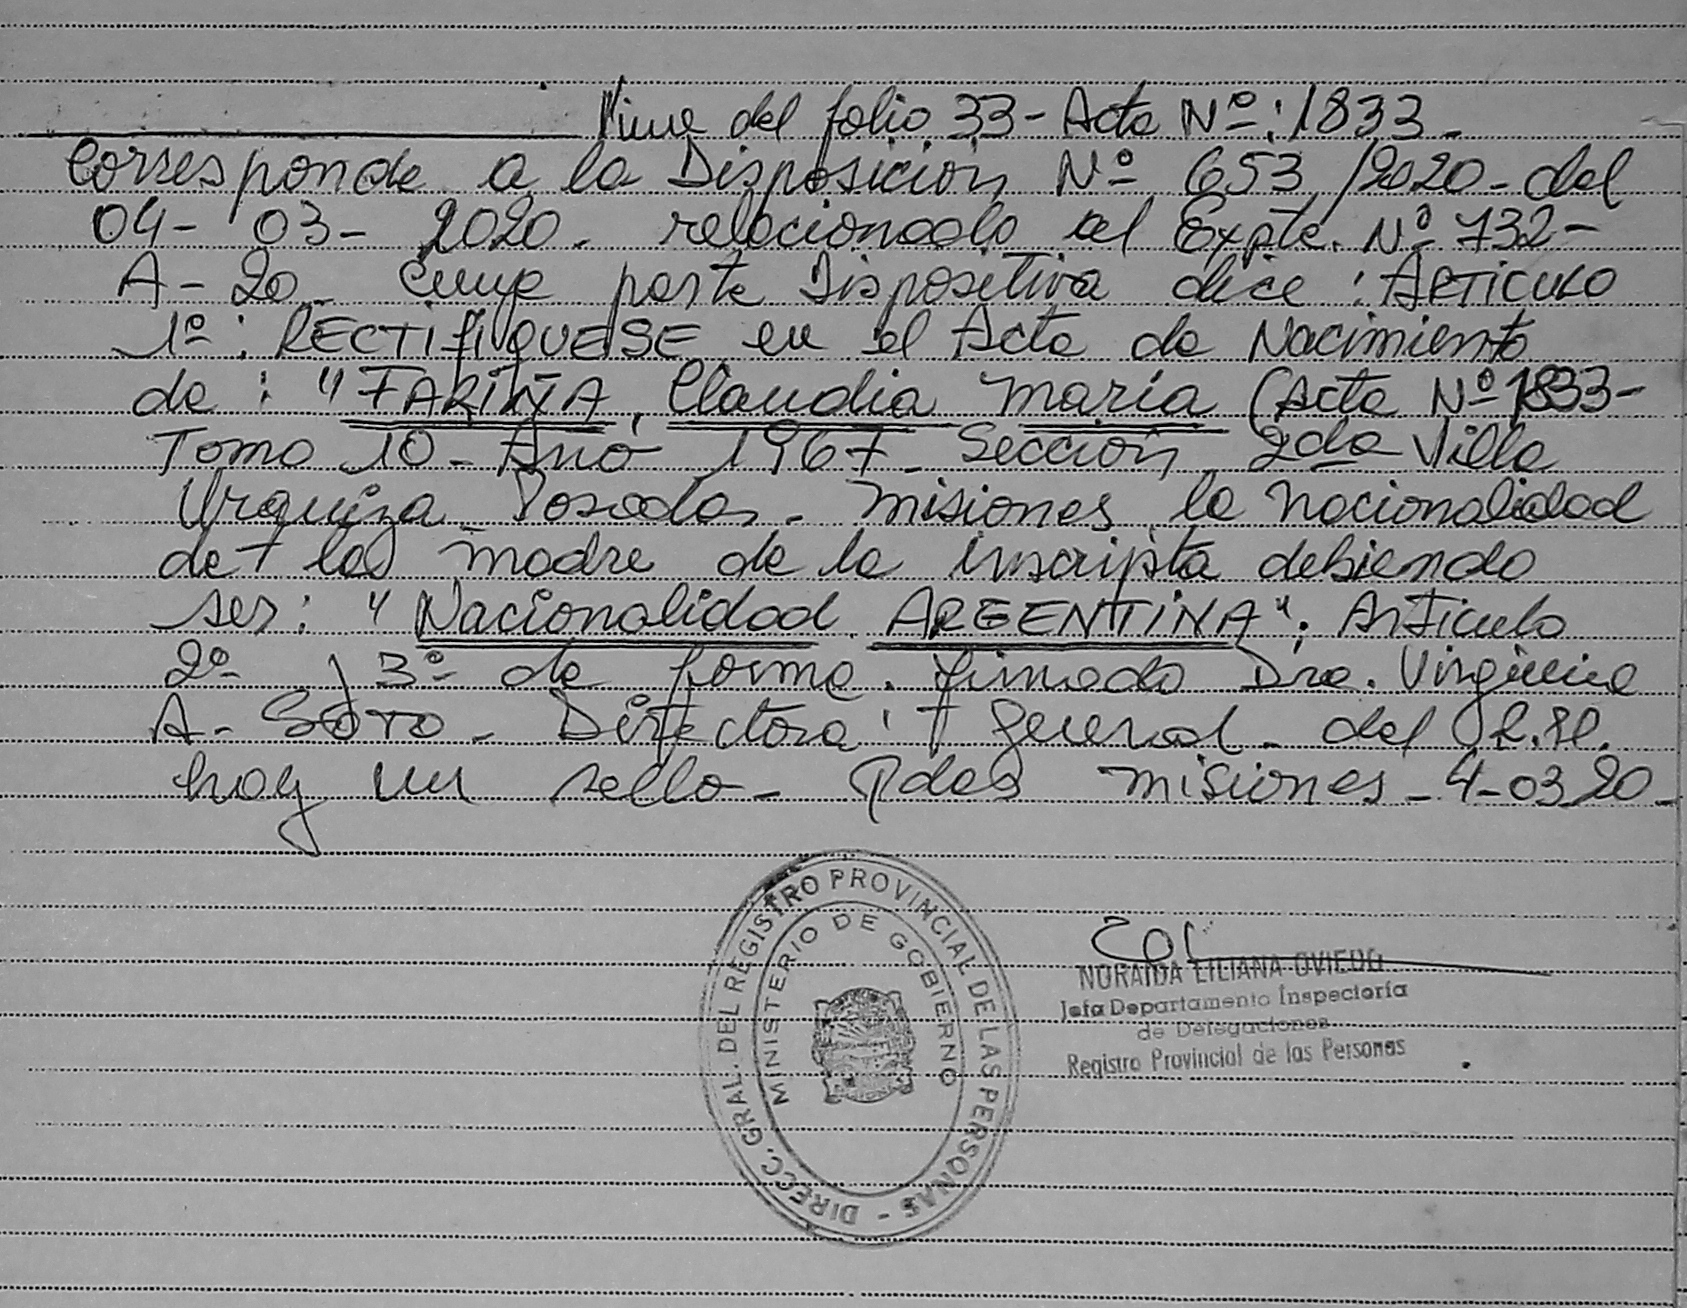 Viene del folio 33- Acta Nº: 1833-
Corresponde a la Disposición Nº 653/2020- del
04- 03- 2020- relacionado al Expte. Nº 732-
A- 20- Cuya parte Dispositiva dice: ARTICULO
1º: RECTIFIQUESE en el Acta de Nacimiento
de: "FARIÑA, Claudia María (Acta Nº 1833-
Tomo 10- Año 1967- Sección 2da Villa
Urquiza- Posadas- Misiones, la nacionalidad
de la madre de la inscripta debiendo
ser: "Nacionalidad ARGENTINA"; Articulo
2º y 3º de forma. firmado Dra. Virginia
A- SOTO- Directora General- del R.P.
hay un sello- Pdas Misiones- 4-03 20-
DIRECC. GRAL. DEL REGISTRO PROVINCIAL DE LAS PERSONAS -
MINISTERIO DE GOBIERNO
NORAIDA LILIANA OVIEDO
Jefa Departamento Inspectoría
de Delegaciones
Registro Provincial de las Personas